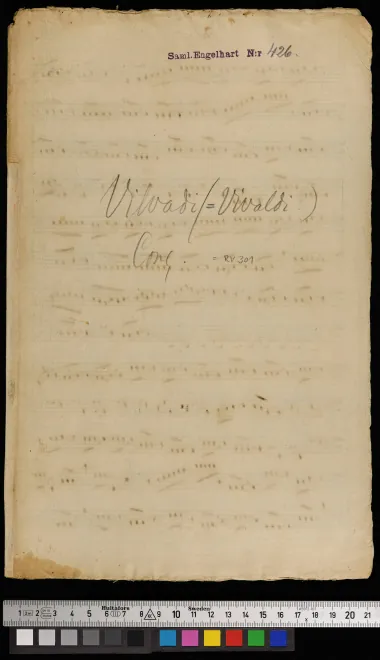 Saml. Engelhart N:r 426.
Vilvadi (= Vivaldi )
Conc. = RV 301
1 2 3 4 5 6 7 8 9 10 11 12 13 14 15 16 17 18 19 20 21
Hultafors Sweden